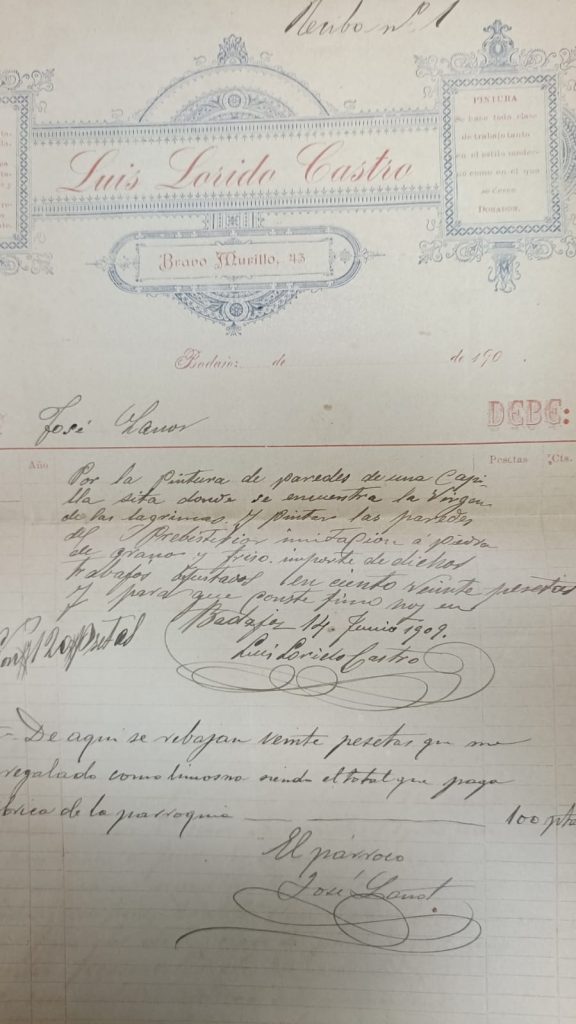 Recibo nº 1
PINTURA
Se hace toda clase
de trabajo tanto
en el estilo moder-
no como en el que
se desee.
DORADOR.
Luis Lorido Castro
Bravo Murillo, 43
Badajoz de de 190 .
José
DEBE:
Año Pesetas Cts.
Por la pintura de paredes de una Capi-
lla sita donde se encuentra la Virgen
de las lagrimas. Y pintar las paredes
del Presbiterio imitacion á piedra
de grano y friso. importe de dichos
trabajos ajustados en ciento veinte pesetas
Y para que conste firmo hoy en
Badajoz 14. Junio 1909.
120 Pesetas
Luis Lorido Castro
De aqui se rebajan veinte pesetas que me
regalado como limosna siendo el total que paga
brica de la parroquia 100 pta
El párroco
José